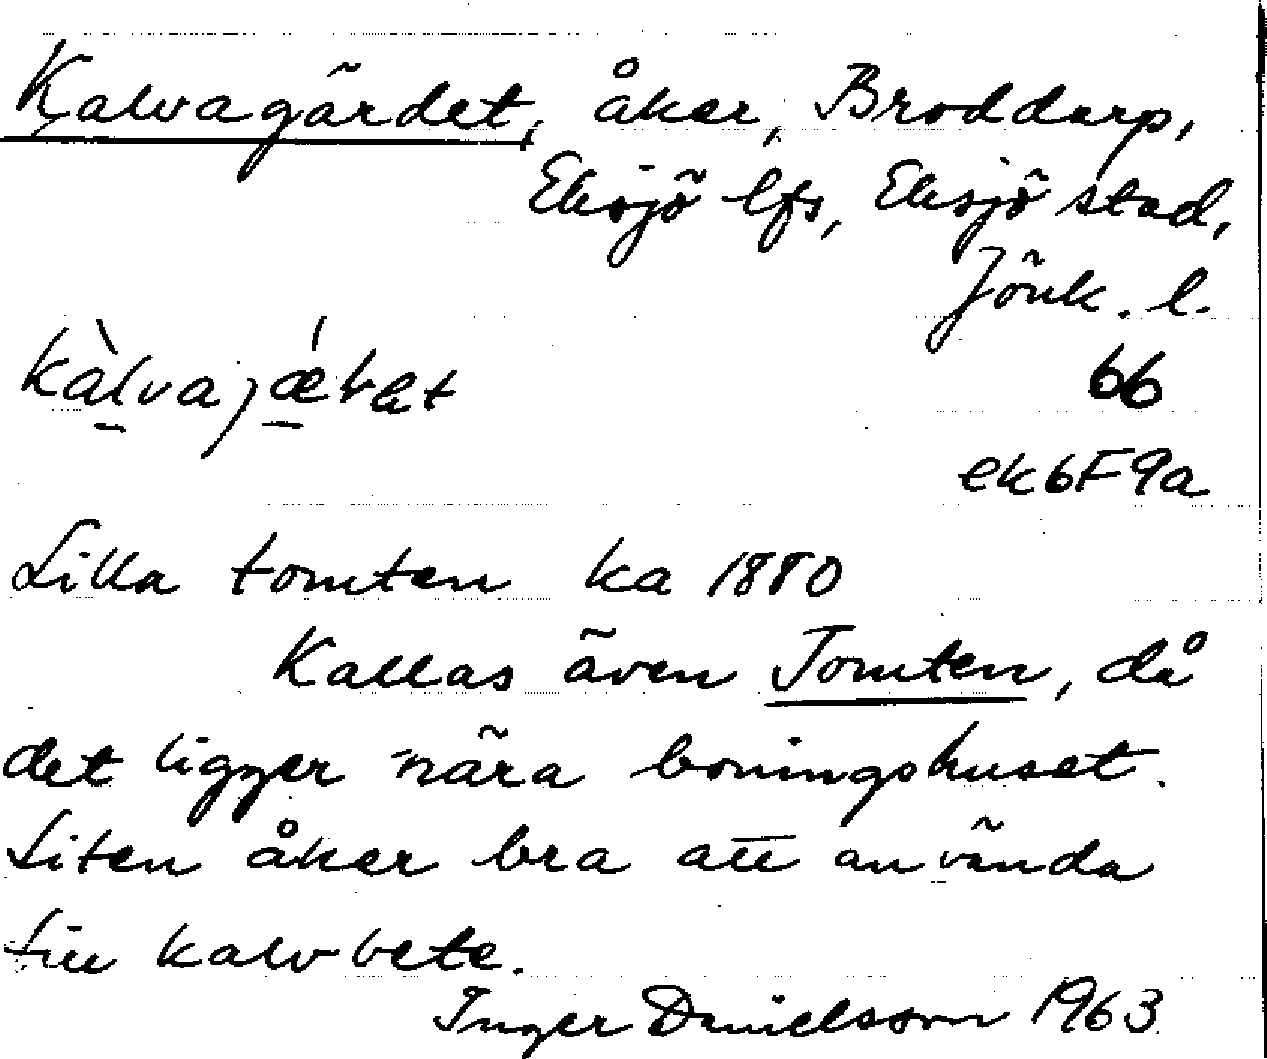 Kalvagärdet, åker, Broddarp,
Eksjö lfs, Eksjö stad,
Jönk. l.
66
ek 6F9a
Lilla tomten ka 1880
Kallas även Tomten, då
det ligger nära boningshuset.
Liten åker bra att använda
till kalvbete.
Inger Danielsson 1963